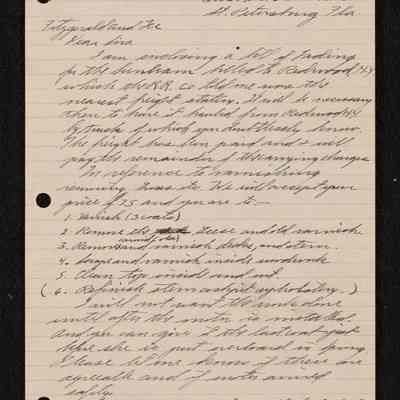 St. Petersburg Fla
Fitzgerald and Lee
Dear Sirs
I am enclosing a bill of lading
for the Sunbeam billed to Redwood NY
which the R.R. co told me was the
nearest freight station. It will be necessary
then to have it hauled from Redwood NY
by truck of which you doubtlessly know.
The freight has been paid and I will
pay the remainder of the carrying charges
In reference to varnishing
removing hoses etc. We will accept your
price of 75 and you are to:-
1. Varnish (3 coats)
2. Remove old and old varnish
3. Remove and varnish decks, and stern.
4. Scrape and varnish inside
5. Clean top inside and out.
(6. Refinish stern cockpit upholstery.)
I will not want the work done
until after the motor is installed
And you can give it the last coat just
before she is put overboard in spring
Please let me know if these are
agreeable and if motor arrived
safely.